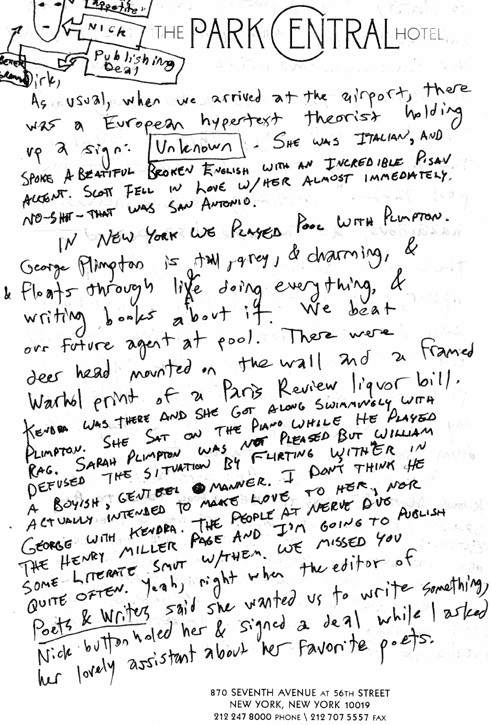 appetite
NICK
Publishing
Deal
THE PARK CENTRAL HOTEL
Dirk,
As usual, when we arrived at the airport, there
was a European hypertext theorist holding
up a sign: Unknown. SHE WAS ITALIAN, AND
SPOKE A BEATIFUL BROKEN ENGLISH WITH AN INCREDIBLE PISAN
ACCENT. SCOTT FELL IN LOVE W/HER ALMOST IMMEDIATELY.
NO-SHIT-THAT WAS SAN ANTONIO.
IN NEW YORK WE PLAYED POOL WITH PLIMPTON.
George Plimpton is tall, grey, & charming, &
& floats through life doing everything, &
writing books about it. We beat
our future agent at pool. There were
deer head mounted on the wall and a framed
Warhol print of a Paris Review liquor bill.
KENDRA WAS THERE AND SHE GOT ALONG SWIMMINGLY WITH
PLIMPTON. SHE SAT ON THE PIANO WHILE HE PLAYED
RAG. SARAH PLIMPTON WAS NOT PLEASED BUT WILLIAM
DEFUSED THE SITUATION BY FLIRTING WITH'ER IN
A BOYISH, GENTEEL MANNER. I DON'T THINK HE
ACTUALLY INTENDED TO MAKE LOVE TO HER, NOR
GEORGE WITH KENDRA. THE PEOPLE AT NERVE DUG
THE HENRY MILLER PAGE AND I'M GOING TO PUBLISH
SOME LITERATE SMUT W/THEM. WE MISSED YOU
QUITE OFTEN. Yeah, right when the editor of
Poets & Writers said she wanted us to write something,
Nick buttonholed her & signed a deal while I asked
her lovely assistant about her favorite poets.
870 SEVENTH AVENUE AT 56TH STREET
NEW YORK, NEW YORK 10019
212 247 8000 PHONE \ 212 707 5557 FAX